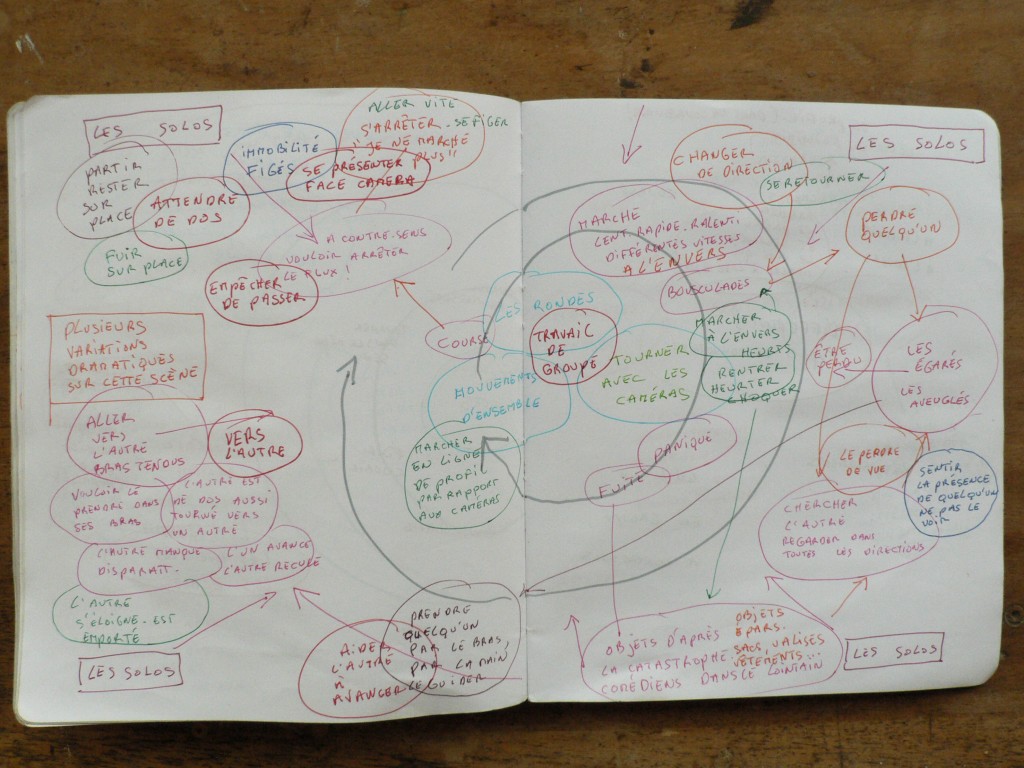 LES SOLOS
PARTIR
RESTER
SUR
PLACE
ATTENDRE
DE DOS
FUIR
SUR PLACE
IMMOBILITÉ
FIGÉS
ALLER VITE
S'ARRÊTER. SE FIGER
"JE NE MARCHE
PLUS"
SE PRÉSENTER
FACE CAMERA
A CONTRE-SENS
VOULOIR ARRÊTER
LE FLUX !
EMPÊCHER
DE PASSER
COURSE
PLUSIEURS
VARIATIONS
DRAMATIQUES
SUR CETTE SCÈNE
ALLER
VERS
L'AUTRE
BRAS TENDUS
VERS
L'AUTRE
VOULOIR LE
PRENDRE DANS
SES BRAS
L'AUTRE EST
DE DOS AUSSI
TOURNÉ VERS
UN AUTRE
L'AUTRE MANQUE
DISPARAÎT.
L'UN AVANCE
L'AUTRE RECULE
L'AUTRE
S'ÉLOIGNE. EST
EMPORTÉ
LES SOLOS
AIDER
L'AUTRE
À
AVANCER
PRENDRE
QUELQU'UN
PAR LE BRAS,
PAR LA MAIN,
LE GUIDER
MARCHER
EN LIGNE
DE PROFIL
PAR RAPPORT
AUX CAMÉRAS
LES RONDES
MOUVEMENTS
D'ENSEMBLE
TRAVAIL
DE
GROUPE
TOURNER
AVEC LES
CAMÉRAS
MARCHE
LENT. RAPIDE. RALENTI.
DIFFÉRENTES VITESSES
A L'ENVERS
BOUSCULADES
CHANGER
DE DIRECTION
SE RETOURNER
LES SOLOS
PERDRE
QUELQU'UN
MARCHER
À L'ENVERS
HEURTS
RENTRER
HEURTER
CHOQUER
ÊTRE
PERDU
LES
ÉGARÉS
LES
AVEUGLES
PANIQUE
FUITE
LE PERDRE
DE VUE
SENTIR
LA PRÉSENCE
DE QUELQU'UN
NE PAS LE
VOIR
CHERCHER
L'AUTRE
REGARDER DANS
TOUTES LES DIRECTIONS
OBJETS D'APRÈS
LA CATASTROPHE.
COMÉDIENS DANS LE LOINTAIN
OBJETS
ÉPARS.
SACS, VALISES
VÊTEMENTS...
LES SOLOS